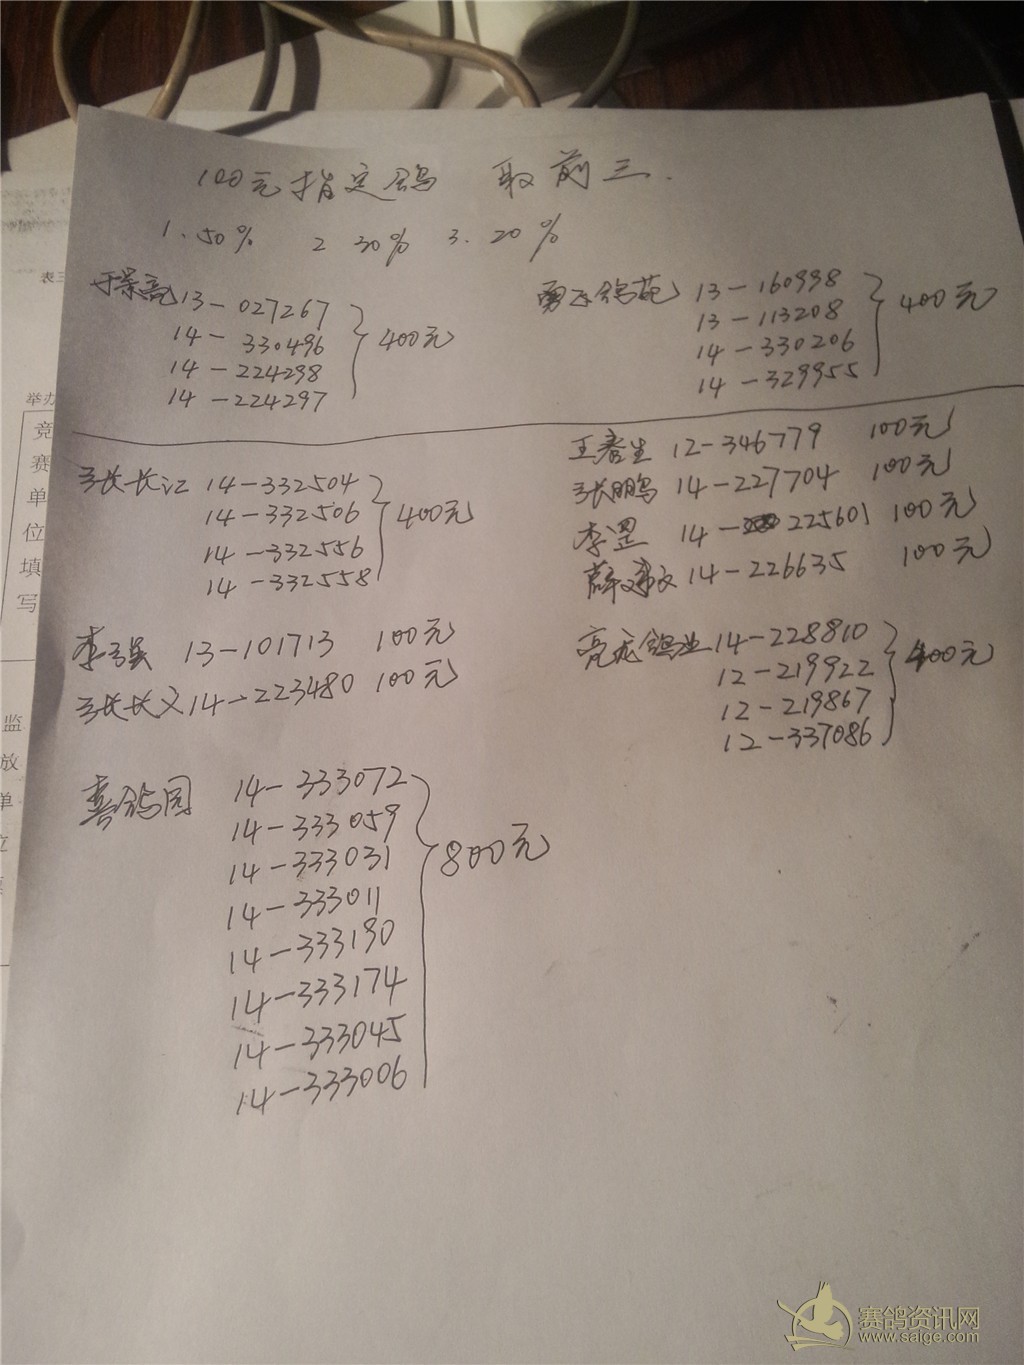 100元指定鸽 取前三.
1.50% 2 30% 3.20%
于景亮 13-027267
14-330496
14-224298
14-224297
400元
勇飞鸽苑 13-160998
13-113208
14-330206
14-329955
400元
张长江 14-332504
14-332506
14-332556
14-332558
400元
王春生 12-346779 100元
张鹏 14-227704 100元
李罡 14-225601 100元
薛文 14-226635 100元
李昊 13-101713 100元
张长义 14-223480 100元
亮龙鸽业 14-228810
12-219922
12-219867
12-337086
400元
喜鸽园 14-333072
14-333059
14-333031
14-333011
14-333190
14-333174
14-333045
14-333006
800元
表三
举办
竞
赛
单
位
填
写
监
放
单
位
赛鸽资讯网
www.saige.com